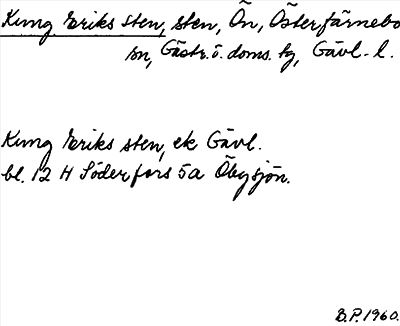 Kung Eriks sten, sten, Ön, Österfärnebo
sn, Gästr. ö. doms. hg, Gävl. l.
Kung Eriks sten, ek Gävl.
bl. 12 H Söderfors 5a Öbysjön.
B.P. 1960.